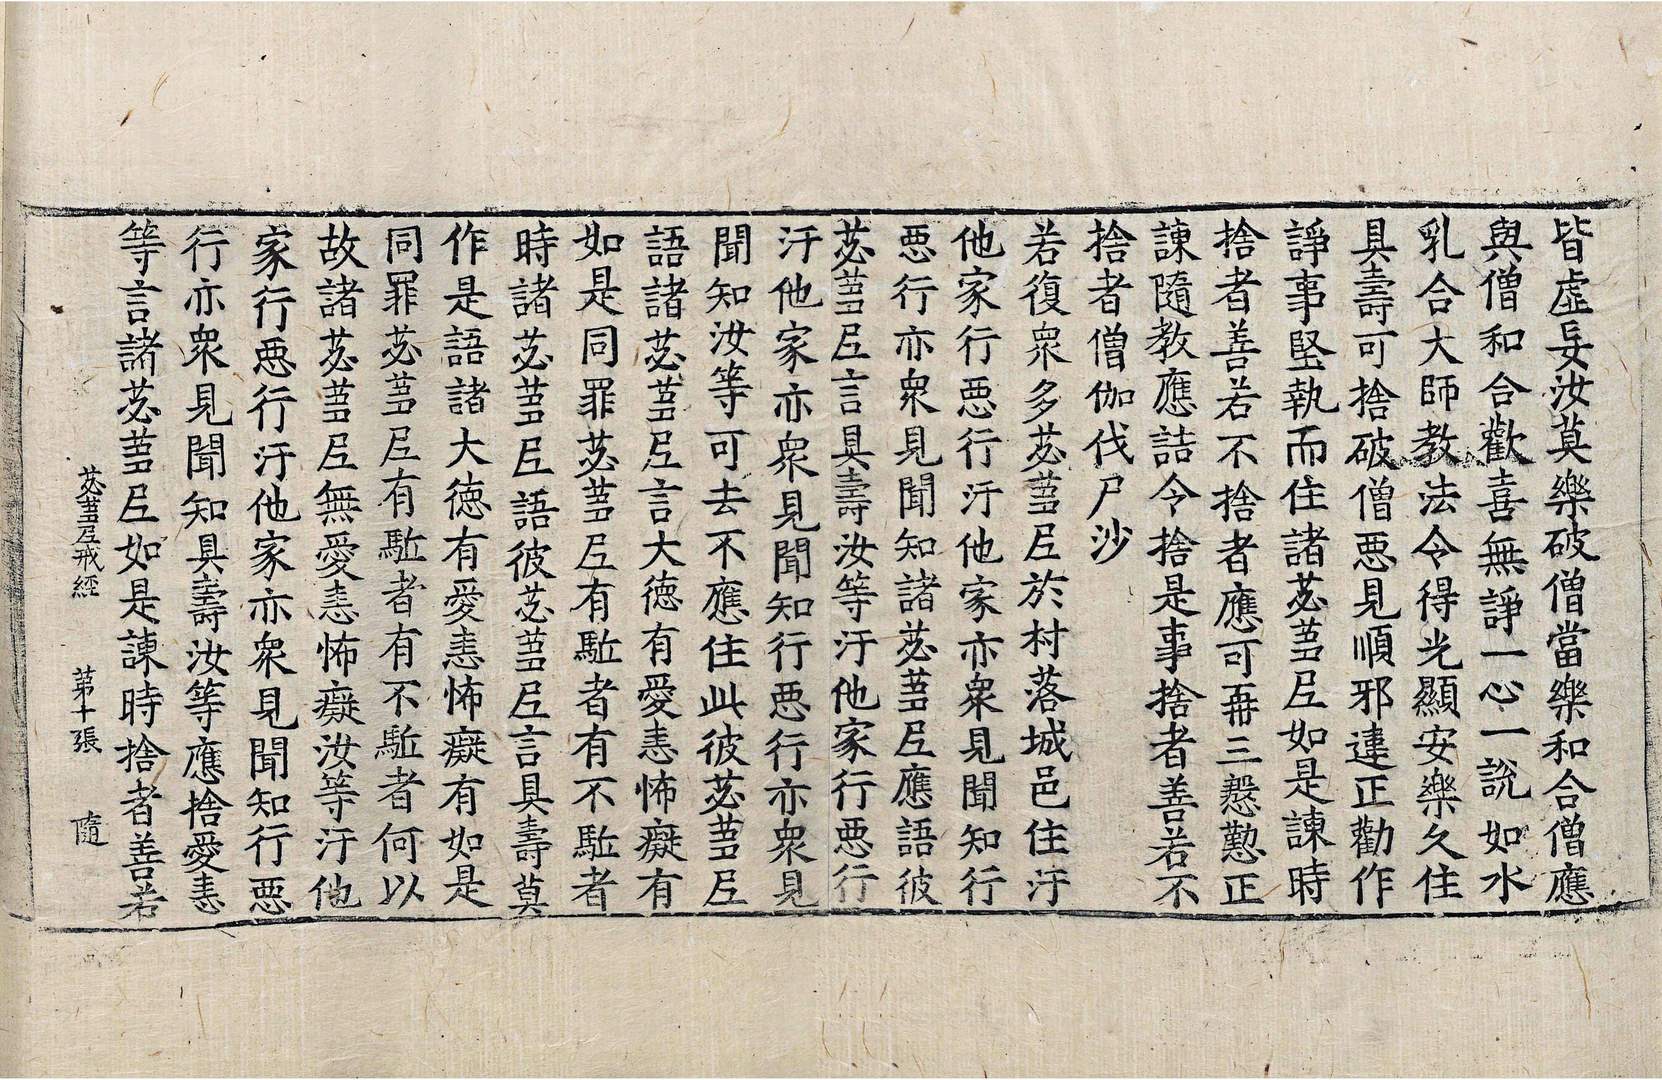 皆虛妄汝莫樂破僧當樂和合僧應
與僧和合歡喜無諍一心一說如水
乳合大師教法令得光顯安樂久住
具壽可捨破僧惡見順邪違正勸作
諍事堅執而住諸苾蒭尼如是諫時
捨者善若不捨者應可再三慇懃正
諫隨教應詰令捨是事捨者善若不
捨者僧伽伐尸沙
若復衆多苾蒭尼於村落城邑住汙
他家行惡行汙他家亦衆見聞知行
惡行亦衆見聞知諸苾蒭尼應語彼
苾蒭尼言具壽汝等汙他家行惡行
汙他家亦衆見聞知行惡行亦衆見
聞知汝等可去不應住此彼苾蒭尼
語諸苾蒭尼言大德有愛恚怖癡有
如是同罪苾蒭尼有駈者有不駈者
時諸苾蒭尼語彼苾蒭尼言具壽莫
作是語諸大德有愛恚怖癡有如是
同罪苾蒭尼有駈者有不駈者何以
故諸苾蒭尼無愛恚怖癡汝等汙他
家行惡行汙他家亦衆見聞知行惡
行亦衆見聞知具壽汝等應捨愛恚
等言諸苾蒭尼如是諫時捨者善若
苾蒭尼戒經 第十張 隨